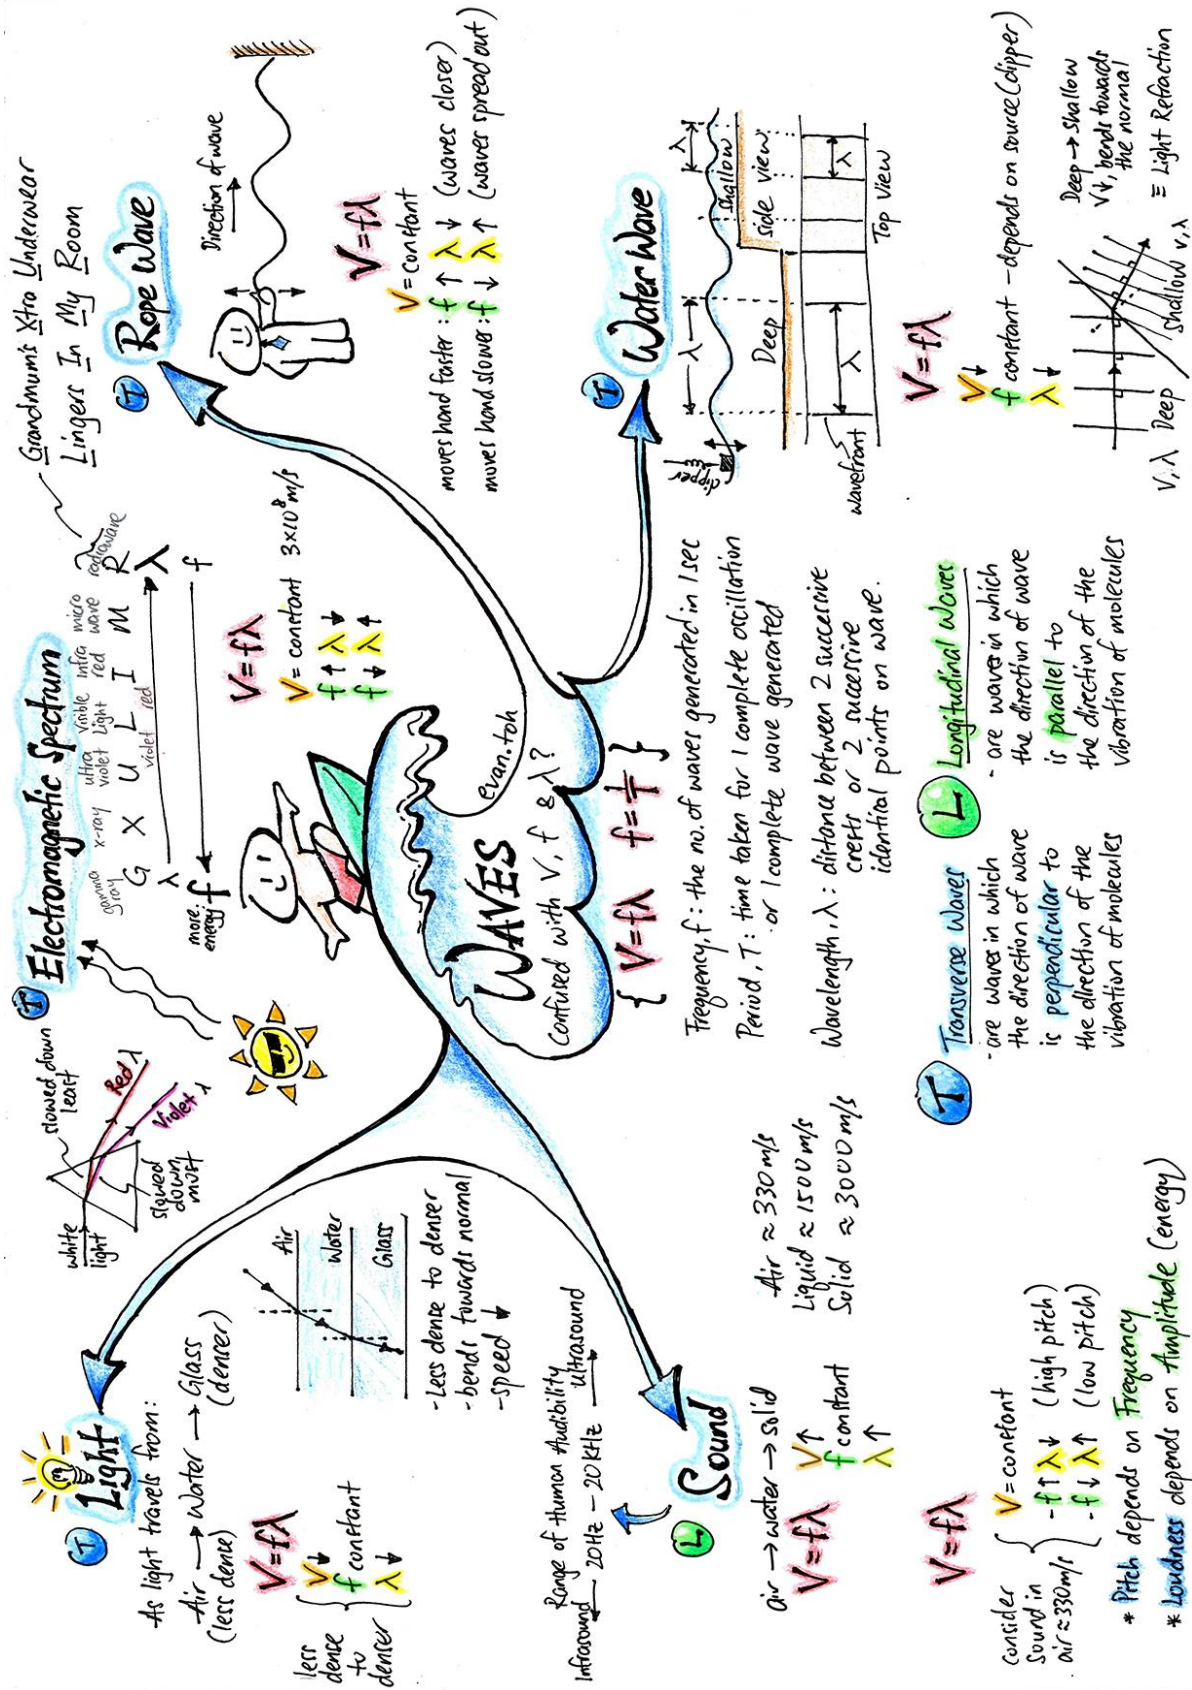 WAVES
Confused with V, f & λ?
evan.toh
{ V = fλ   f = 1/T }
Frequency, f : the no. of waves generated in 1 sec
Period, T : time taken for 1 complete oscillation
or 1 complete wave generated
Wavelength, λ : distance between 2 successive
crests or 2 successive
identical points on wave.
T Transverse Waves
- are waves in which
the direction of wave
is perpendicular to
the direction of the
vibration of molecules
L Longitudinal Waves
- are waves in which
the direction of wave
is parallel to
the direction of the
vibration of molecules
T Light
As light travels from:
Air → Water → Glass
(less dense) (denser)
V = fλ
less
dense
to
denser
V↓
f constant
λ↓
Air
Water
Glass
- Less dense to denser
- bends towards normal
- speed ↓
white
light
slowed down
least
Red λ
Violet λ
slowed
down
most
T Electromagnetic Spectrum
gamma ray
x-ray
ultra violet
visible light
infra red
micro wave
radiowave
G X U L I M R
violet red
λ → λ
f ← f
more energy
Grandmum's Xtra Underwear
Lingers In My Room
V = fλ
V = constant 3×10⁸ m/s
f↑ λ↓
f↓ λ↑
T Rope Wave
Direction of wave
V = fλ
V = constant
moves hand faster : f↑ λ↓ (waves closer)
moves hand slower : f↓ λ↑ (waves spread out)
T Water Wave
dipper
λ
λ
Deep
Shallow
side view
wavefront
λ
λ
Top View
V = fλ
V↓
f constant - depends on source (dipper)
λ↓
Deep → shallow
V↓, bends towards
the normal
≡ Light Refraction
V, λ Deep
shallow v, λ
L Sound
Range of Human Audibility
Infrasound ← 20Hz - 20kHz → Ultrasound
air → water → solid
V = fλ
V↑
f constant
λ↑
Air ≈ 330 m/s
Liquid ≈ 1500 m/s
Solid ≈ 3000 m/s
V = fλ
consider
sound in
air ≈ 330 m/s
V = constant
- f↑ λ↓ (high pitch)
- f↓ λ↑ (low pitch)
* Pitch depends on Frequency
* Loudness depends on Amplitude (energy)